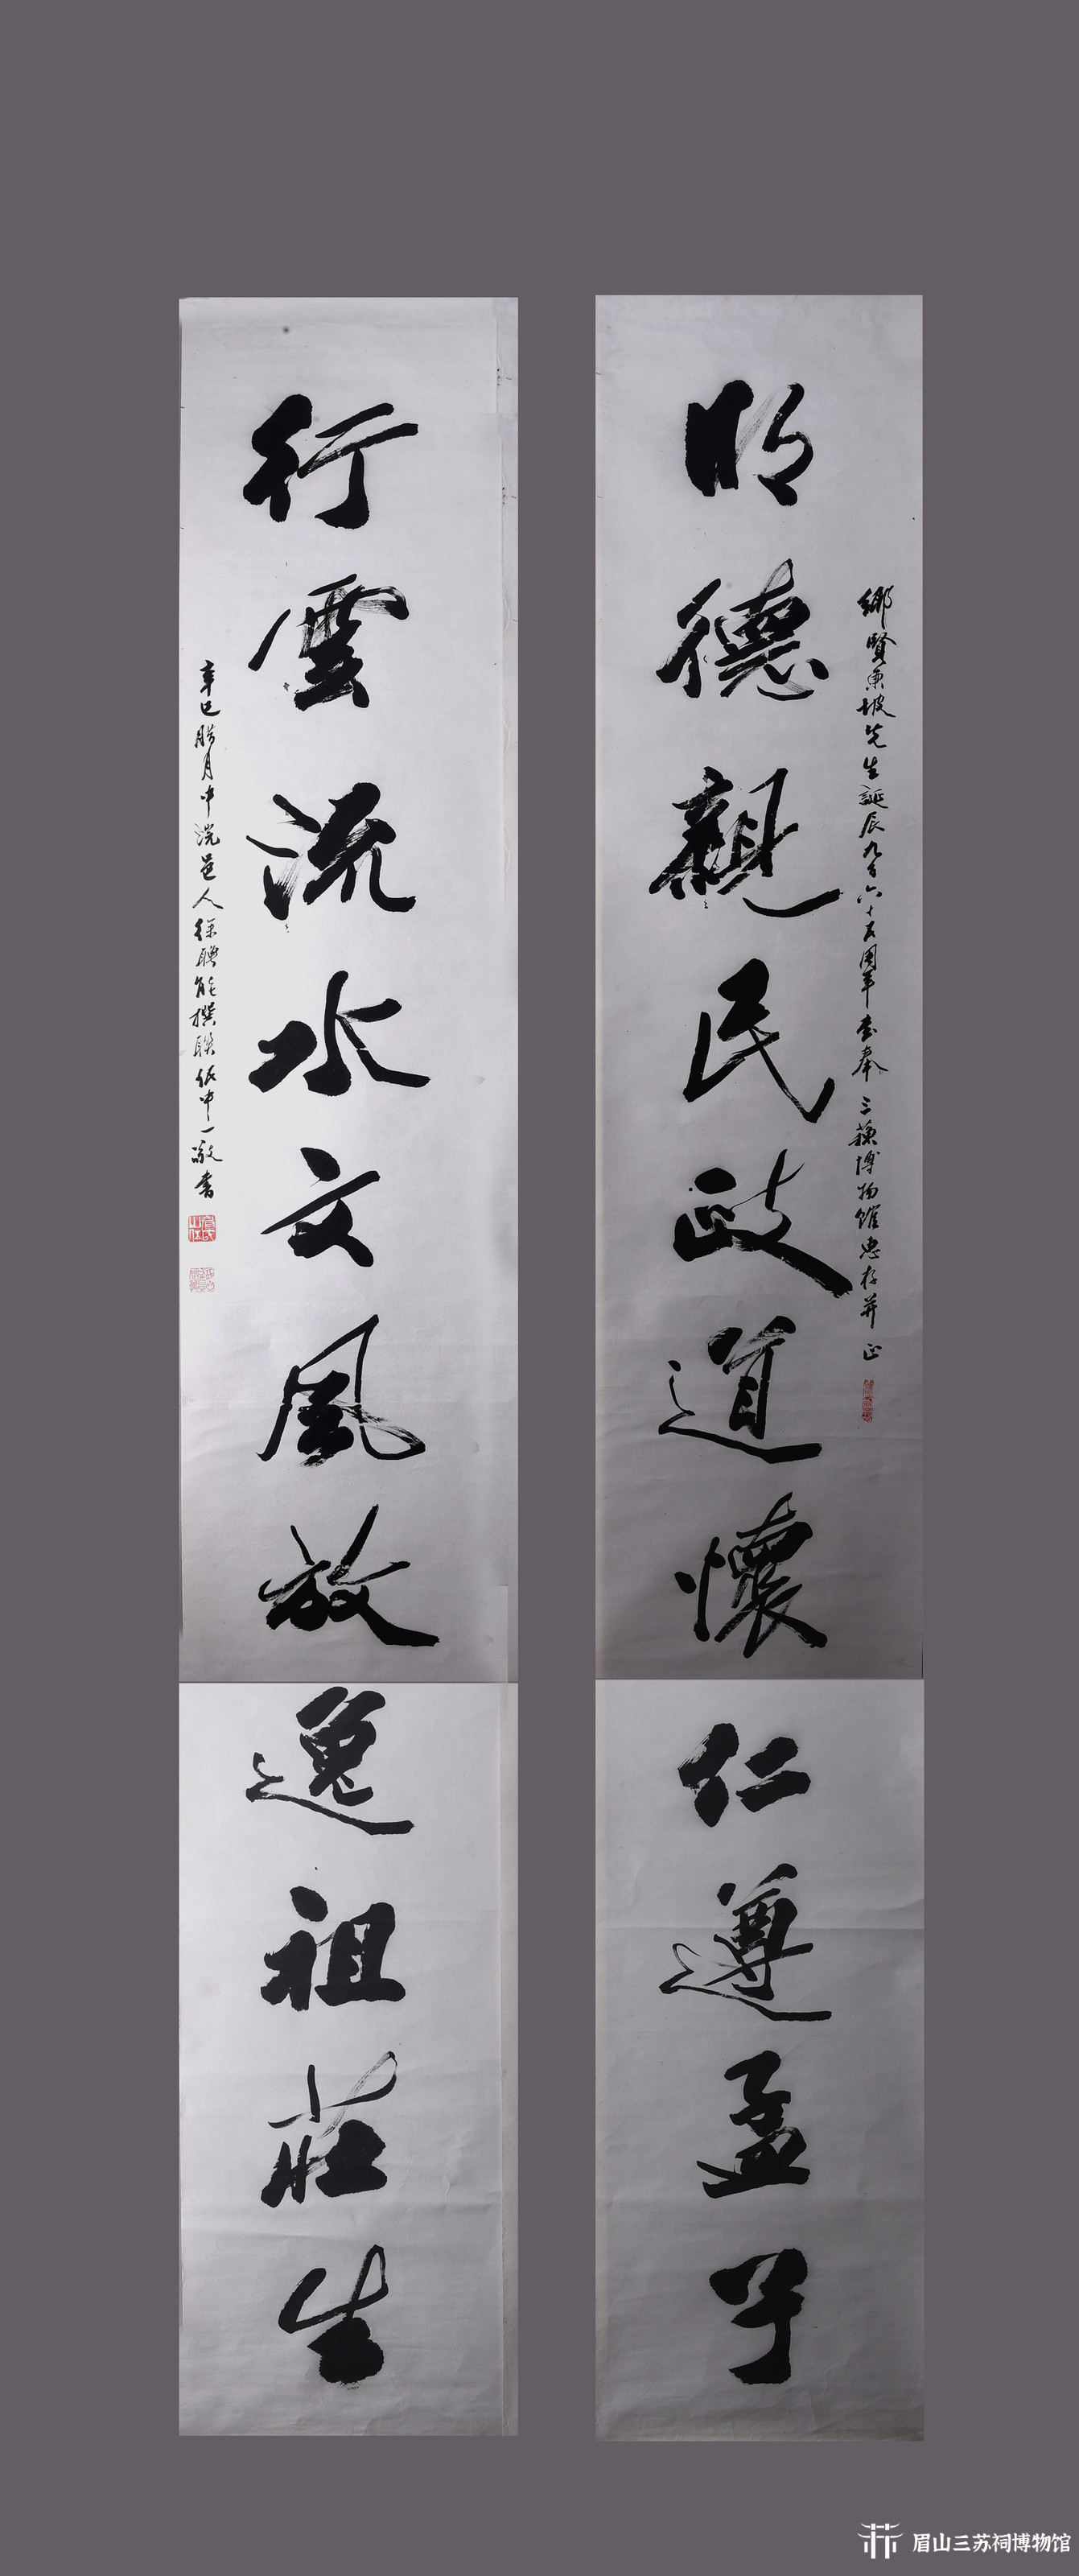 鄉賢東坡先生誕辰九百六十五周年書奉三蘇博物館惠存并正
明德親民政道懷仁遵孟子
行雲流水文風放逸祖莊生
辛巳腊月中浣邑人徐聘能撰聯伍中一敬書
眉山三苏祠博物馆